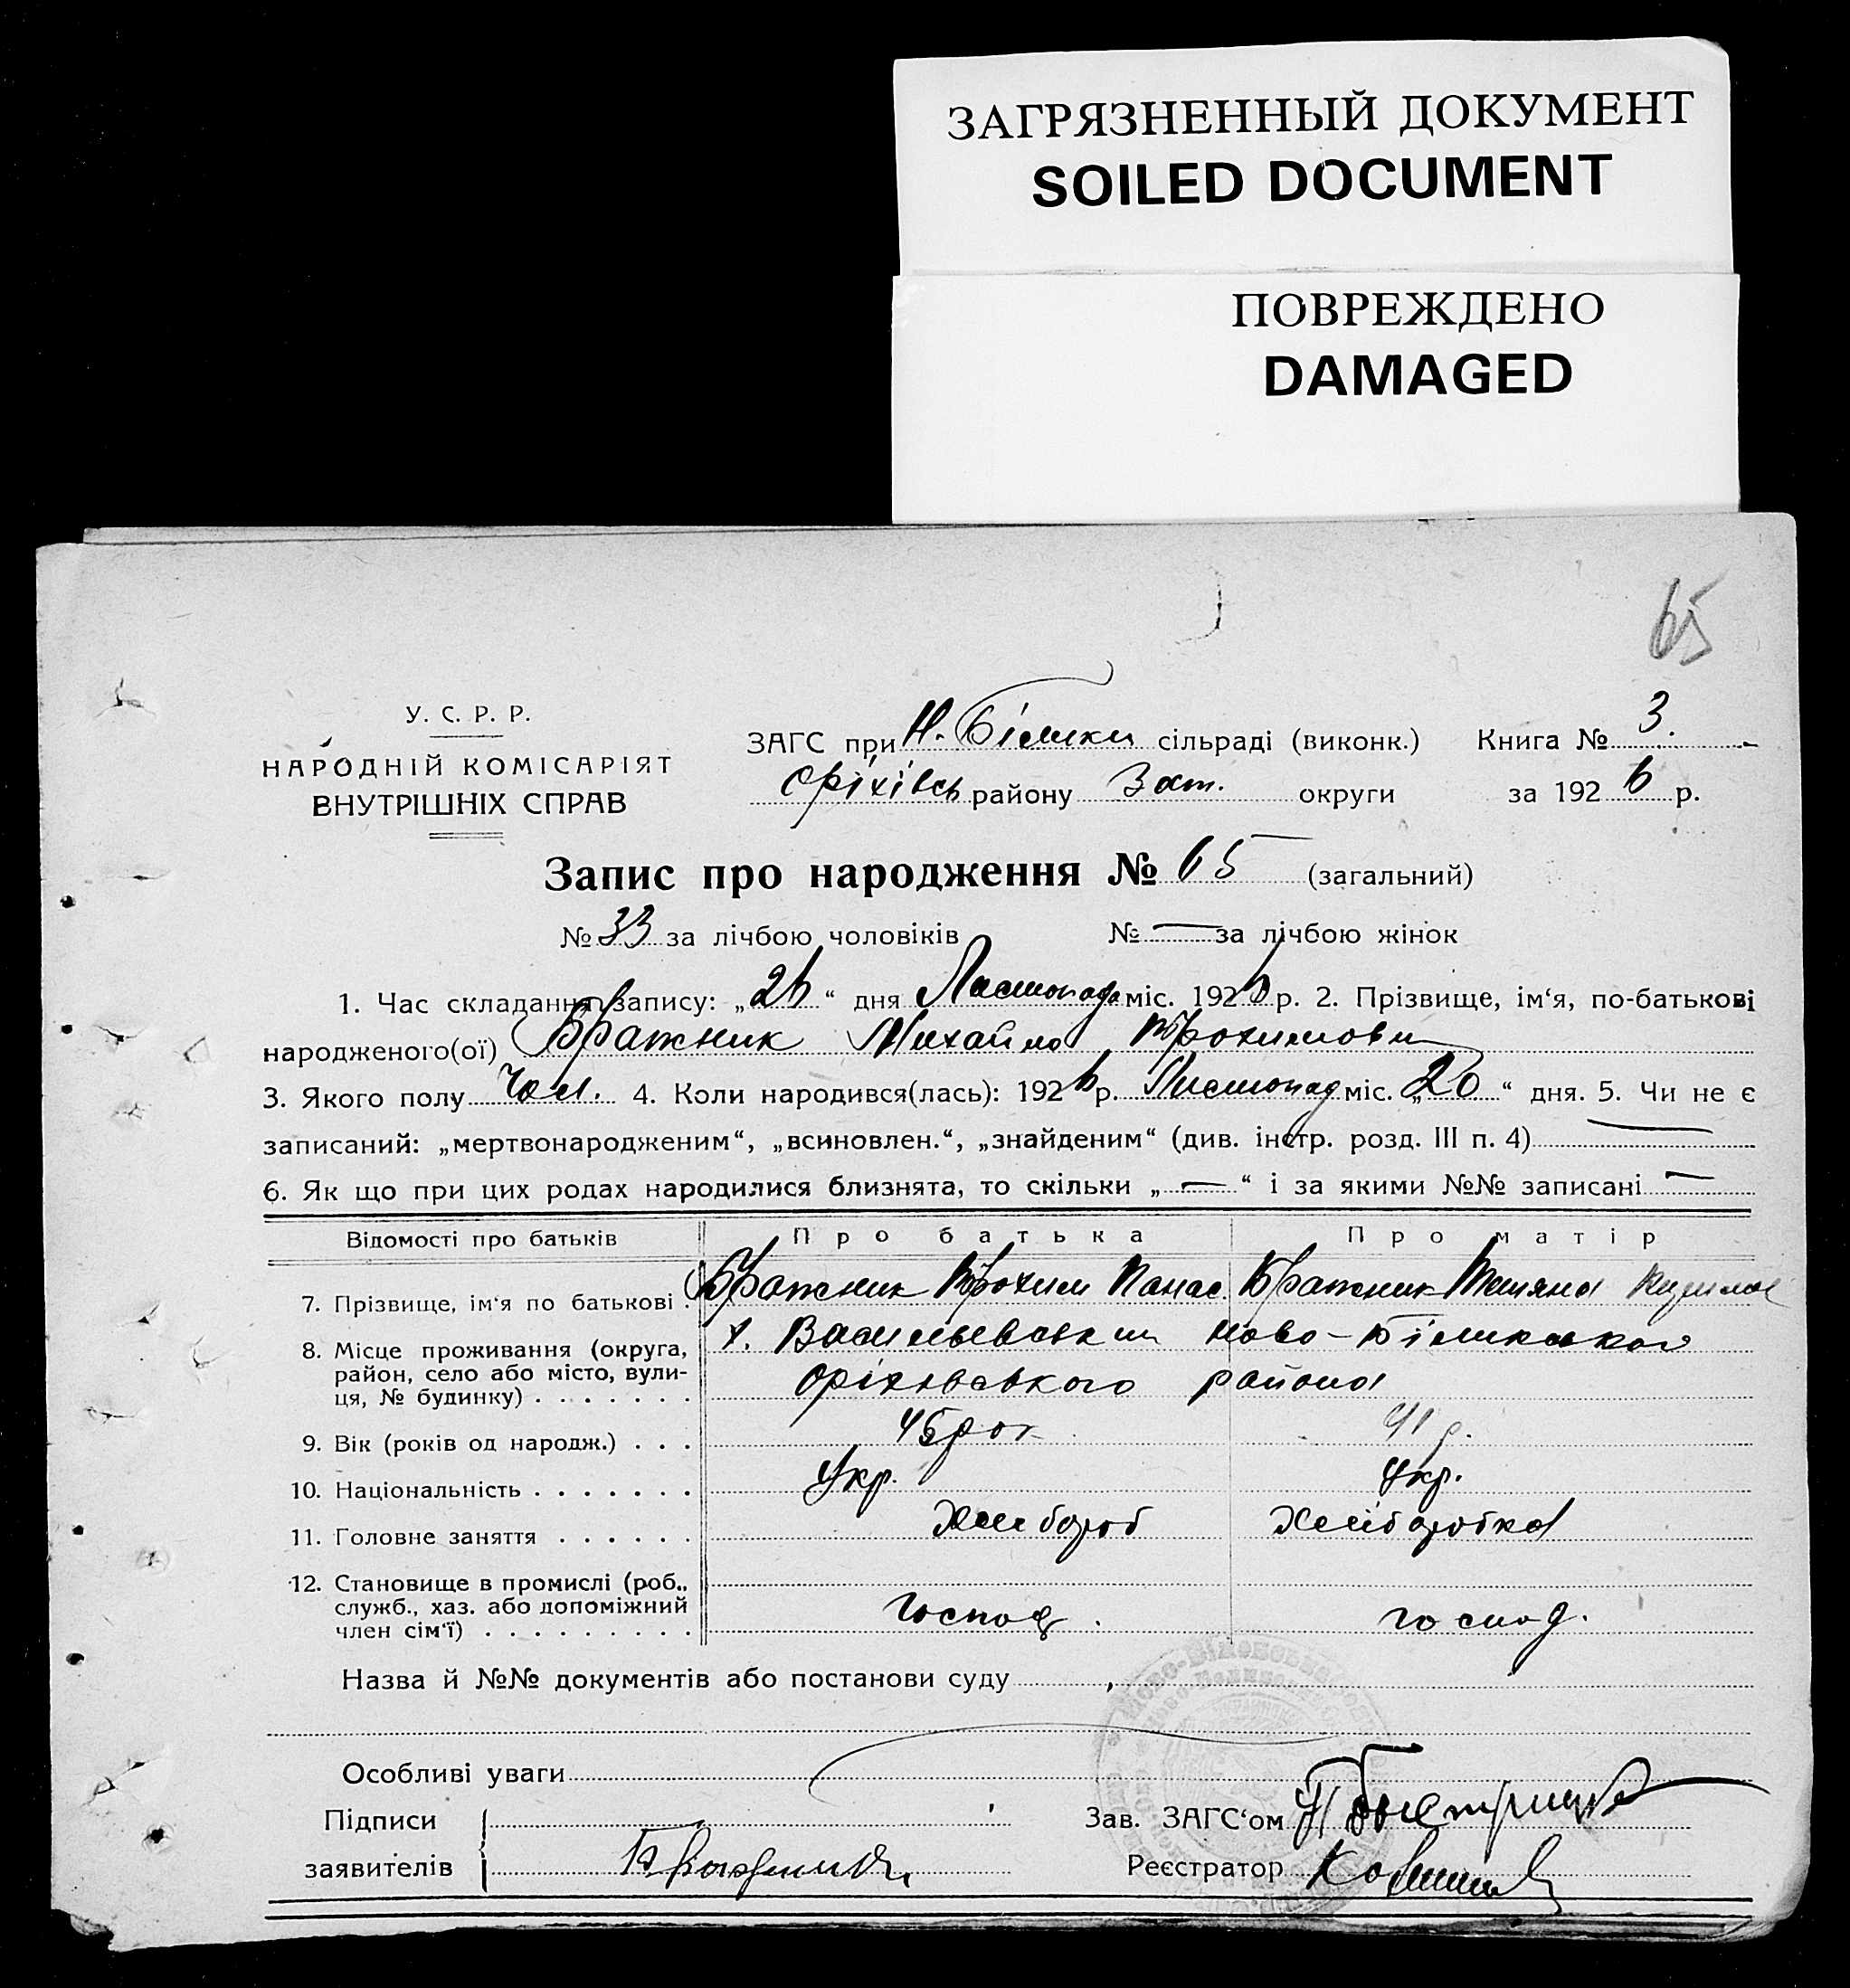 ЗАГРЯЗНЕННЫЙ ДОКУМЕНТ
SOILED DOCUMENT
ПОВРЕЖДЕНО
DAMAGED
65
У. С. Р. Р.
НАРОДНІЙ КОМІСАРІЯТ
ВНУТРІШНІХ СПРАВ
ЗАГС при Н. Білики сільраді (виконк.) Книга № 3.
Оріхівсь району Зап. округи за 1926 р.
Запис про народження № 65 (загальний)
№ 33 за лічбою чоловіків № — за лічбою жінок
1. Час складання запису: „26“ дня Листопада міс. 1926 р. 2. Прізвище, ім‘я, по-батькові
народженого(ої) Бражник Михайло Трохимови
3. Якого полу Чол. 4. Коли народився(лась): 1926 р. Листопад міс. „20“ дня. 5. Чи не є
записаний: „мертвонародженим“, „всиновлен.“, „знайденим“ (див. інстр. розд. III п. 4) —
6. Як що при цих родах народилися близнята, то скільки „—“ і за якими №№ записані —
Відомості про батьків Про батька Про матір
7. Прізвище, ім‘я по батькові . Бражник Трохим Панас. Бражник Тетяна
8. Місце проживання (округа, х. Васильевськи Ново-Біликского
район, село або місто, вули-
ця, № будинку) . . . . . . . Оріховського района
9. Вік (років од народж.) . . . 45 рок 41 р.
10. Національність . . . . . . . Укр. Укр.
11. Головне заняття . . . . . . Хлебороб Хліборобка
12. Становище в промислі (роб.,
служб., хаз. або допоміжний
член сім‘ї) . . . . . . . . . Господ. господ.
Назва й №№ документів або постанови суду
Особливі уваги
Підписи Зав. ЗАГС‘ом
заявителів Бражник Реєстратор